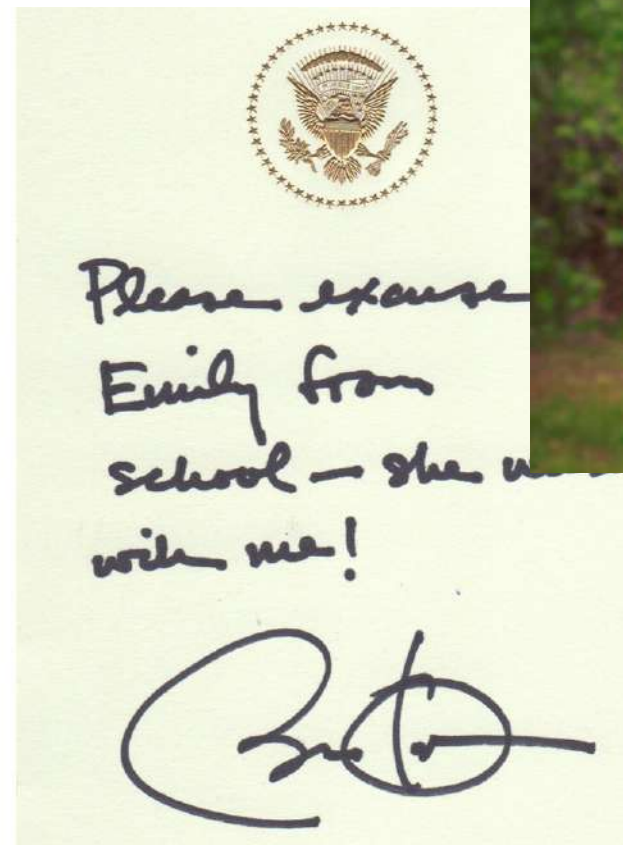 Please excuse
Emily from
school — she
with me!